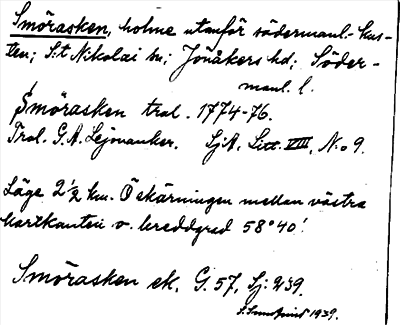 Smörasken, holme utanför södermanl.-kus-
ten; S:t Nikolai sn; Jönåkers hd; Söder-
manl. l.
Smörasken tral. 1774-76.
Tral. G. A. Lejonanker. SjA. Litt. VIII, N:o 9.
Läge 2 1/2 km. Ö skärningen mellan västra
kartkanten o. breddgrad 58°40'.
Smörasken ek. G. 57, Sj: 239.
S. Sundqvist 1939.